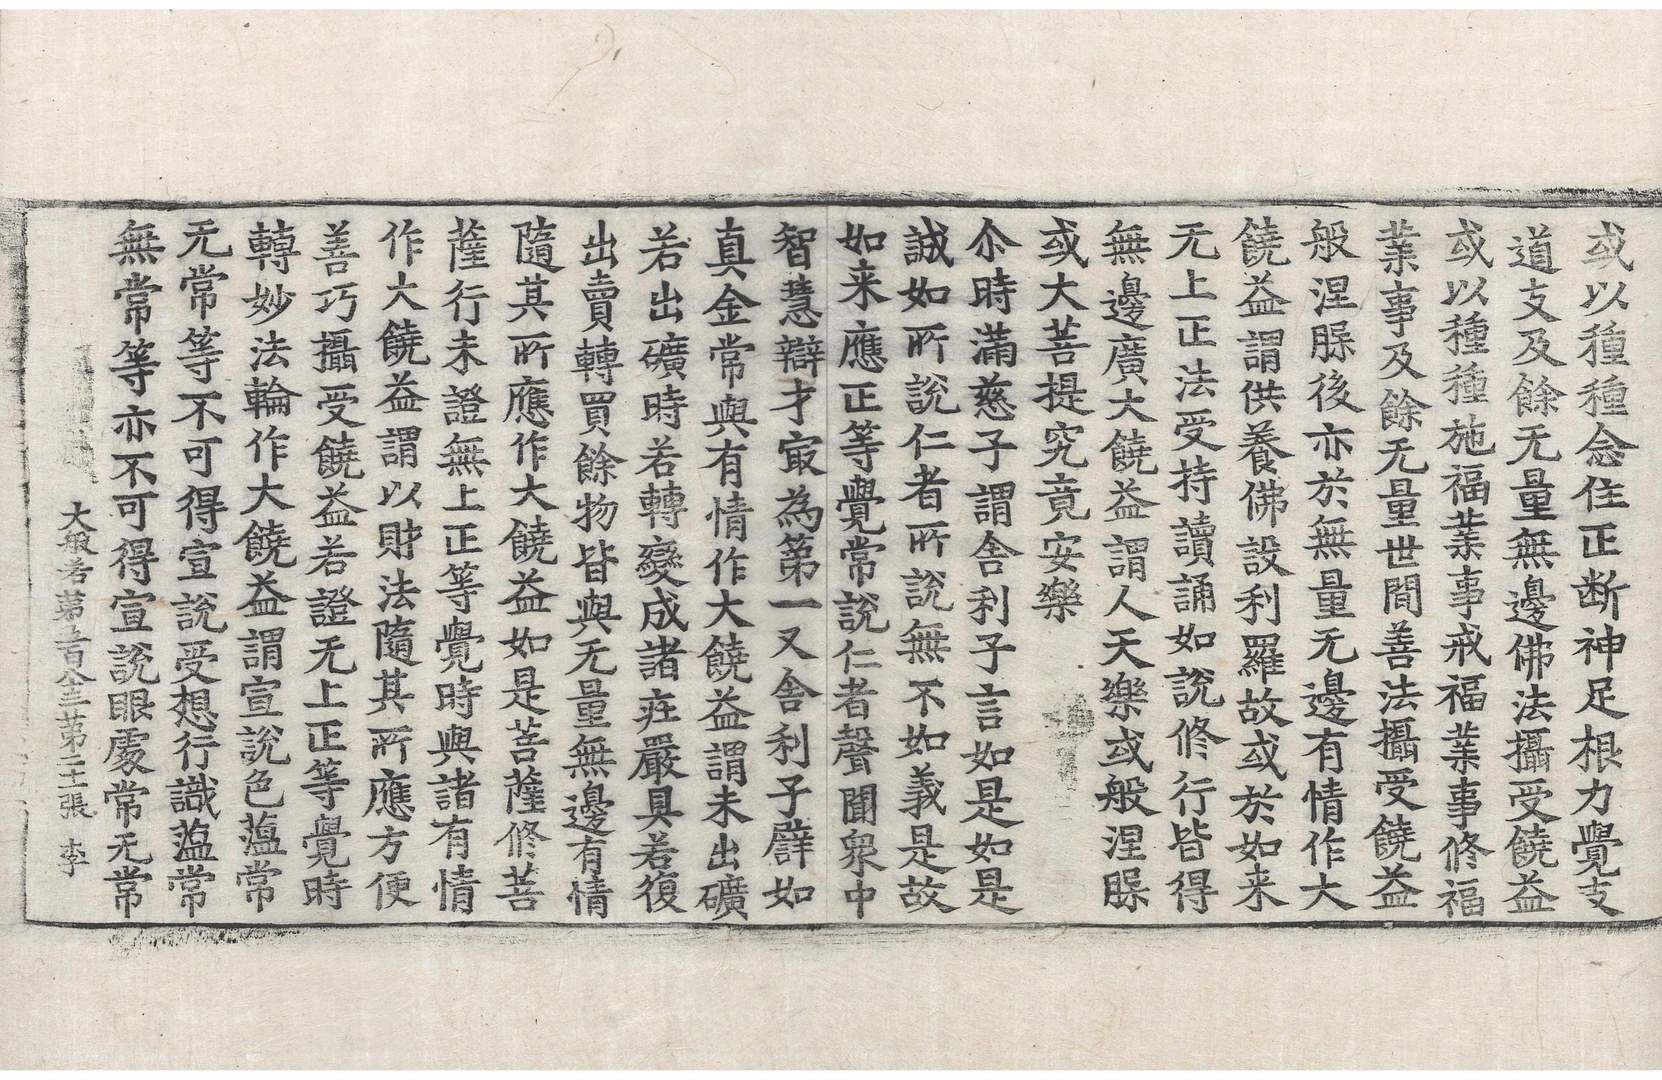 或以種種念住正断神足根力覺支
道支及餘无量無邊佛法攝受饒益
或以種種施福業事戒福業事修福
業事及餘无量世間善法攝受饒益
般涅槃後亦於無量无邊有情作大
饒益謂供養佛設利羅故或於如来
无上正法受持讀誦如說修行皆得
無邊廣大饒益謂人天樂或般涅槃
或大菩提究竟安樂
尒時滿慈子謂舍利子言如是如是
誠如所說仁者所說無不如義是故
如来應正等覺常說仁者聲聞衆中
智慧辯才㝡為第一又舍利子譬如
真金常與有情作大饒益謂未出礦
若出礦時若轉變成諸莊嚴具若復
出賣轉買餘物皆與无量無邊有情
隨其所應作大饒益如是菩薩修菩
薩行未證無上正等覺時與諸有情
作大饒益謂以財法隨其所應方便
善巧攝受饒益若證无上正等覺時
轉妙法輪作大饒益謂宣說色蘊常
无常等不可得宣說受想行識蘊常
無常等亦不可得宣說眼處常无常
大般若第五百八十三第二十張 李